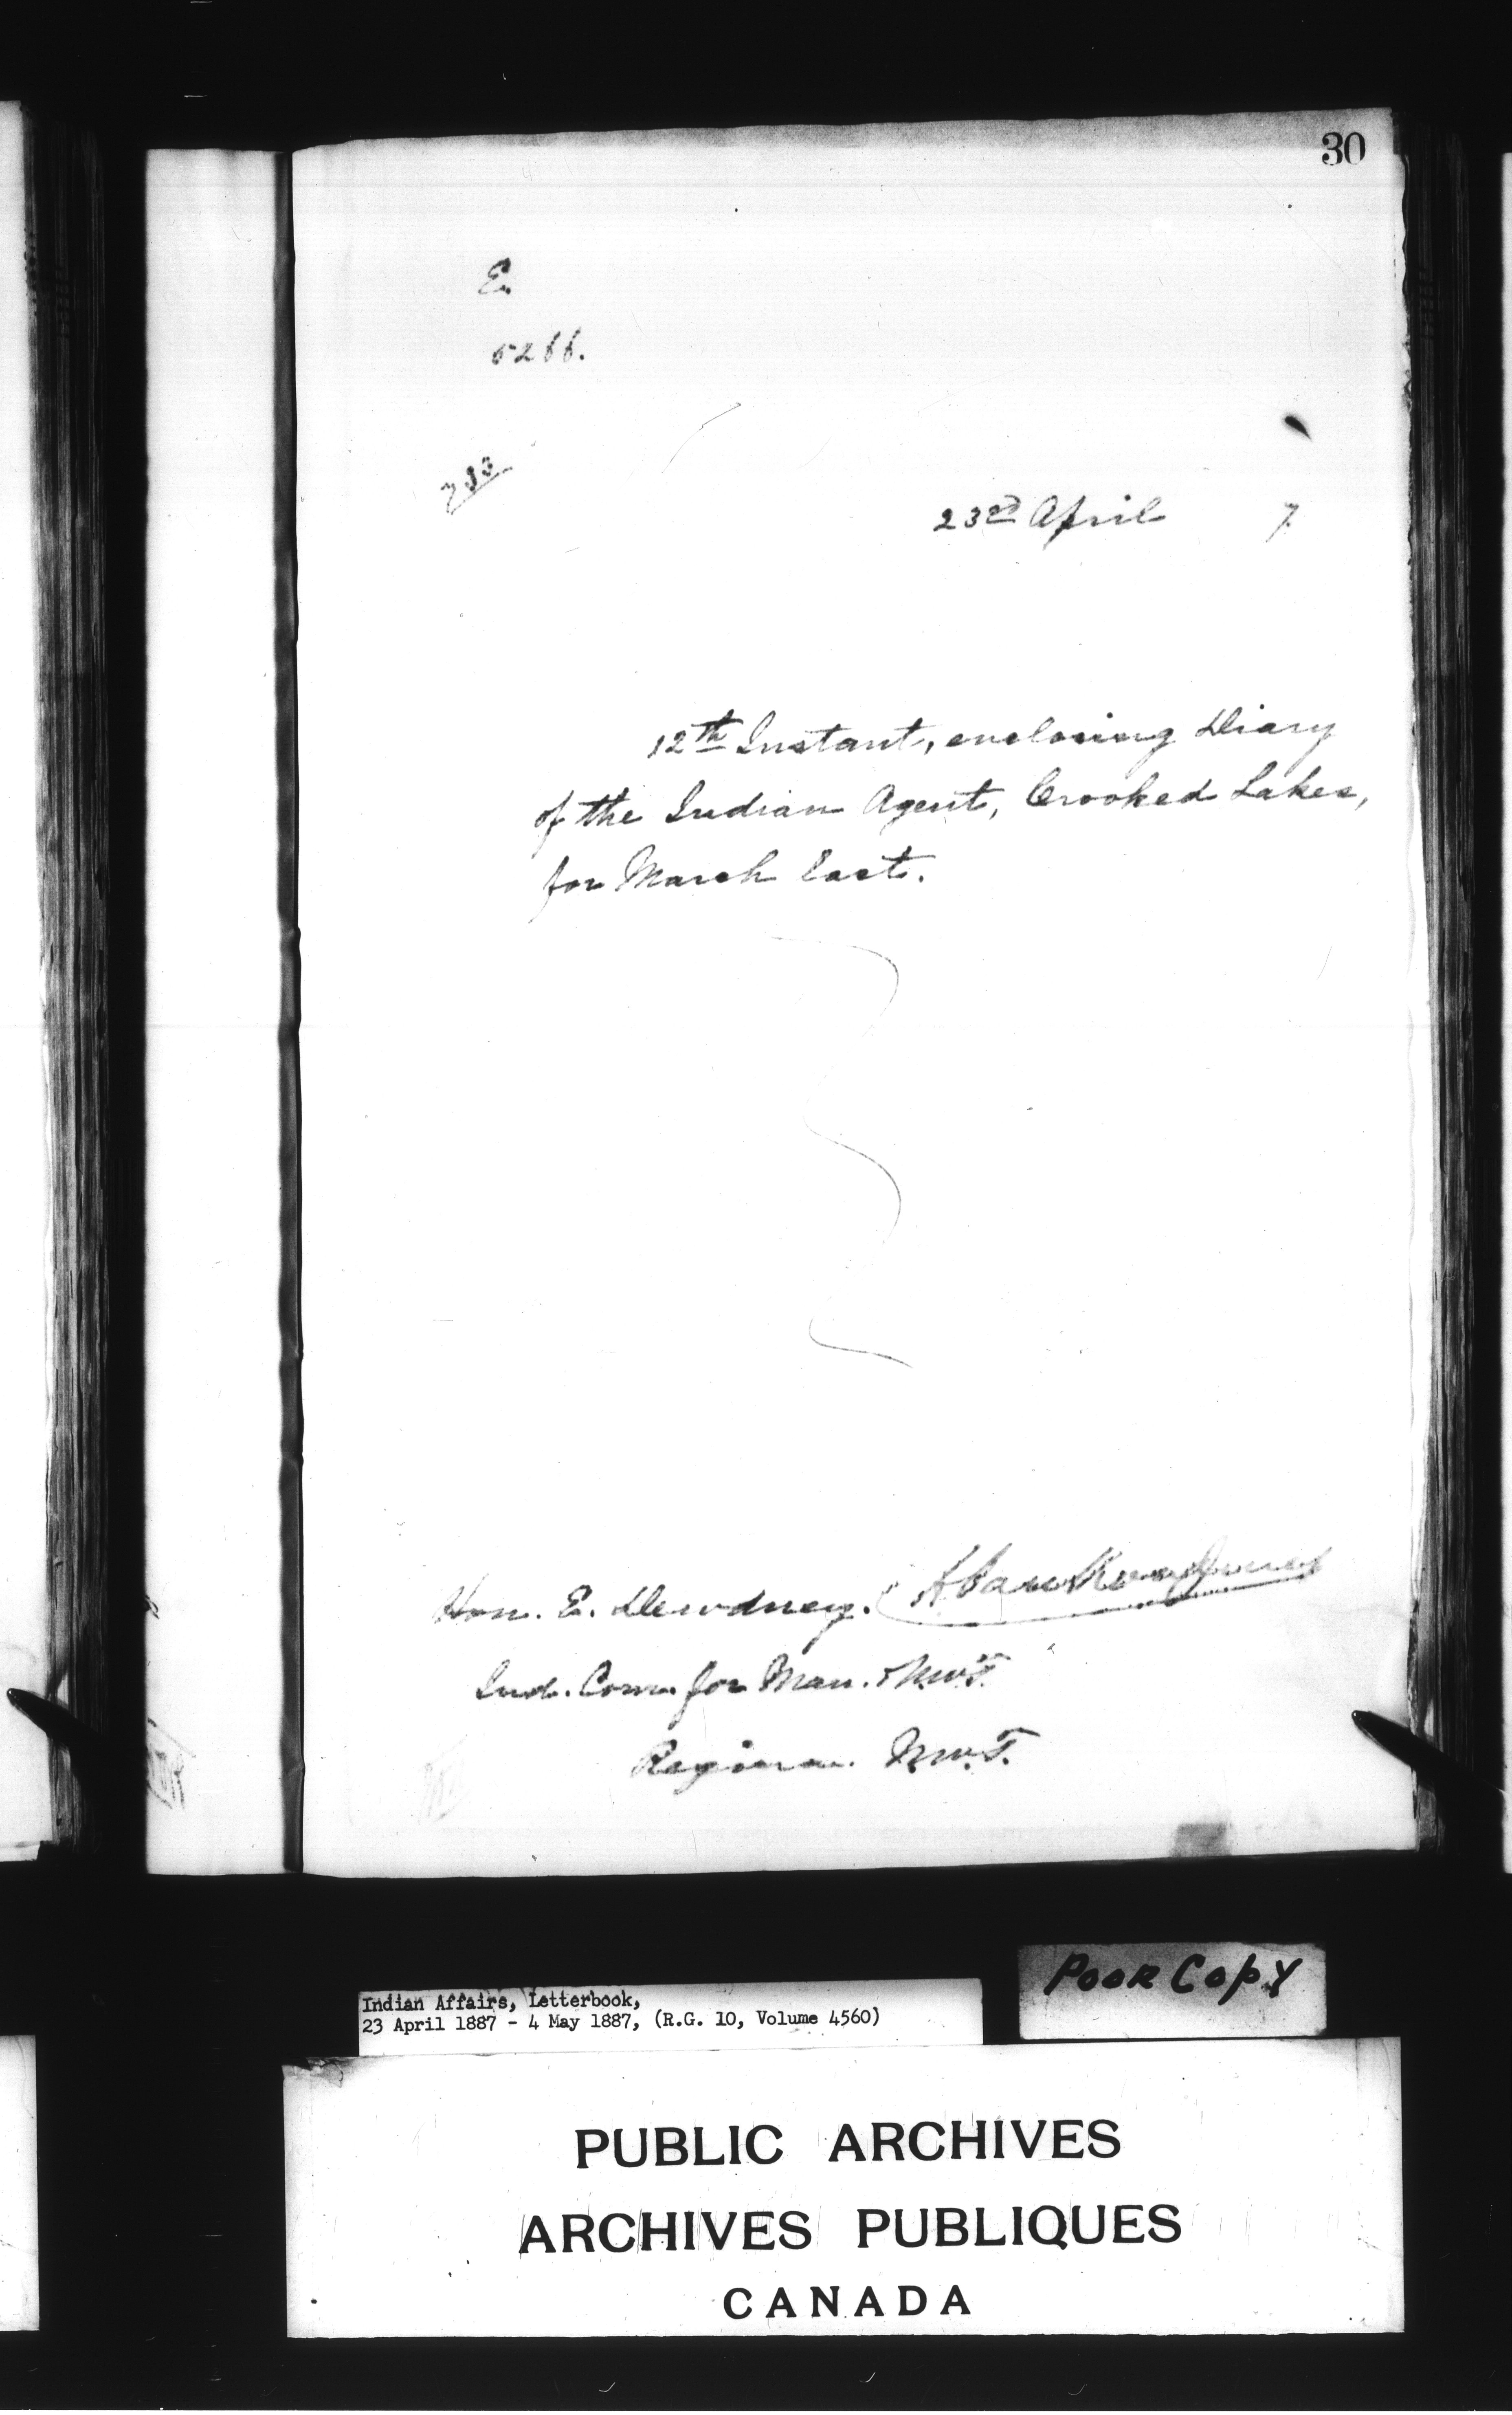 30
E.
5266.
783
23rd April 7.
12th Instant, enclosing Diary
of the Indian Agent, Crooked Lakes,
for March last.
Hon. E. Dewdney.
Ind. Com. for Man. & N.W.T.
Regina. N.W.T.
POOR COPY
Indian Affairs, Letterbook,
23 April 1887 - 4 May 1887, (R.G. 10, Volume 4560)
PUBLIC ARCHIVES
ARCHIVES PUBLIQUES
CANADA